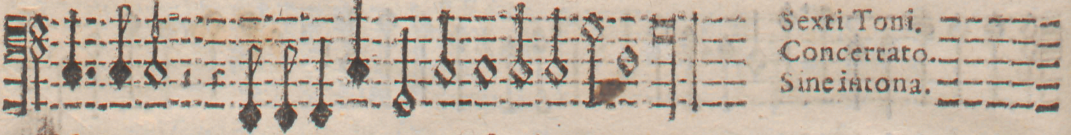 Sexti Toni.
Concertato.
Sine intona.